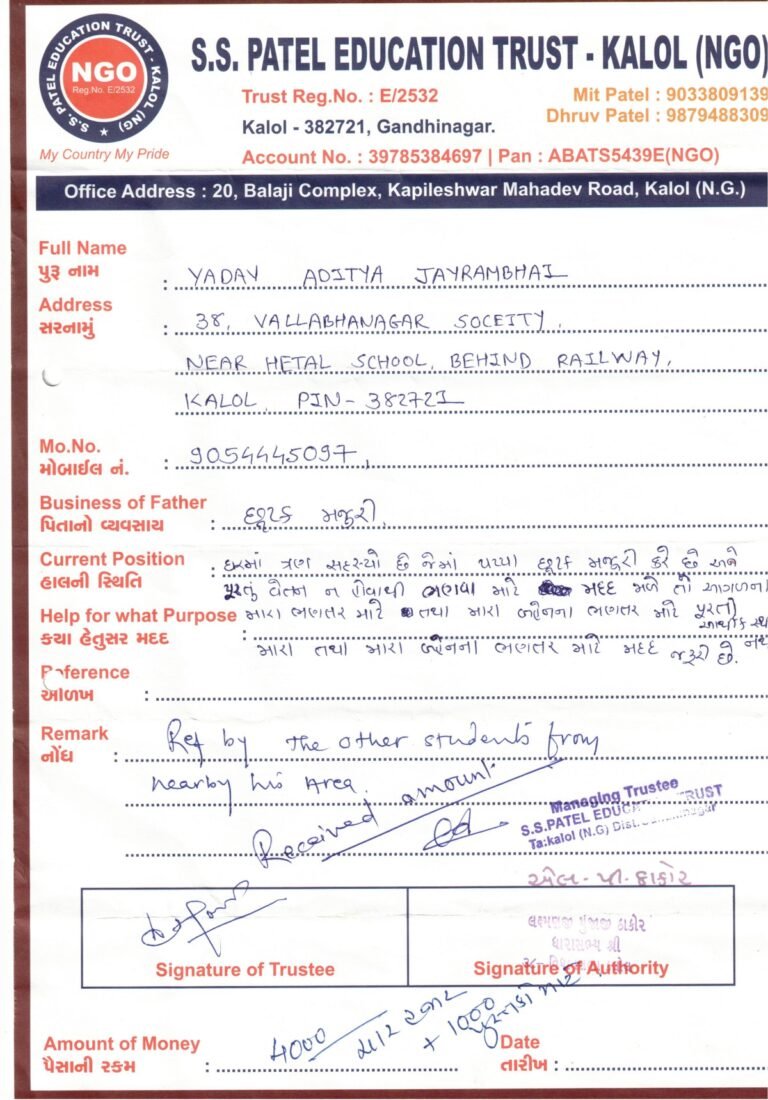 S.S. PATEL EDUCATION TRUST - KALOL (NG)
NGO
Reg.No. E/2532
My Country My Pride
S.S. PATEL EDUCATION TRUST - KALOL (NGO)
Trust Reg.No. : E/2532
Mit Patel : 9033809139
Kalol - 382721, Gandhinagar.
Dhruv Patel : 9879488309
Account No. : 39785384697 | Pan : ABATS5439E(NGO)
Office Address : 20, Balaji Complex, Kapileshwar Mahadev Road, Kalol (N.G.)
Full Name
પુરૂ નામ : YADAV ADITYA JAYRAMBHAI
Address
સરનામું : 38, VALLABHANAGAR SOCEITY,
NEAR HETAL SCHOOL, BEHIND RAILWAY,
KALOL, PIN- 382721
Mo.No.
મોબાઈલ નં. : 9054445097,
Business of Father
પિતાનો વ્યવસાય : છૂટક મજુરી.
Current Position : ઘરમાં ત્રણ સદસ્યો છે જેમાં પપ્પા છૂટક મજુરી કરે છે અને
હાલની સ્થિતિ પૂરતું વેતન ન હોવાથી ભણવા માટે મદદ મળે તો આગળના
Help for what Purpose મારા ભણતર માટે તથા મારા બ્હેનના ભણતર માટે પૂરતી
કયા હેતુસર મદદ : આર્થીક
મારા તથા મારા બ્હેનના ભણતર માટે મદદ જરૂરી છે.
Reference
ઓળખ :
Remark Ref by the other students from
નોંધ :
nearby his Area.
Received amount.
Managing Trustee
S.S.PATEL EDUC TRUST
Ta:kalol (N.G) Dist.
એલ. પી. ઠાકોર
લક્ષ્મણજી પુંજાજી ઠાકોર
ધારાસભ્ય શ્રી
Signature of Trustee
Signature of Authority
4000 ચાર હજાર
+ 1000 પુસ્તકો માટે
Amount of Money
પૈસાની રકમ :
Date
તારીખ :